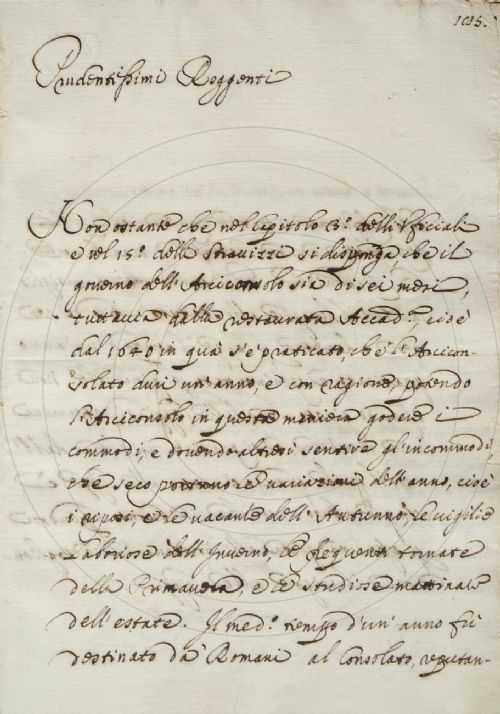 1015.
Prudentissimi Reggenti
Non ostante che nel Capitolo 3.º delli Ufficiali
e nel 15.º delli Stravizzi si disponga, che il
governo dell'Arciconsolo sia di sei mesi,
tuttavia dalla restaurata Accad.ª, cioè
dal 1640 in quà s'è praticato, che l'Arcicon-
solato duri un'anno, e con ragione, potendo
l'Arciconsolo in questa maniera godere i
commodi, e dovendo altresì sentire gl'incommodi,
che seco portano le variazioni dell'anno, cioè
i riposi, e le vacanze dell'Autunno, le vigilie
laboriose dell'Inverno, le frequenti tornate
della Primavera, e le studiose mattinate
dell'estate. Il med.º tempo d'un'anno fù
destinato da' Romani al Consolato, reputan-